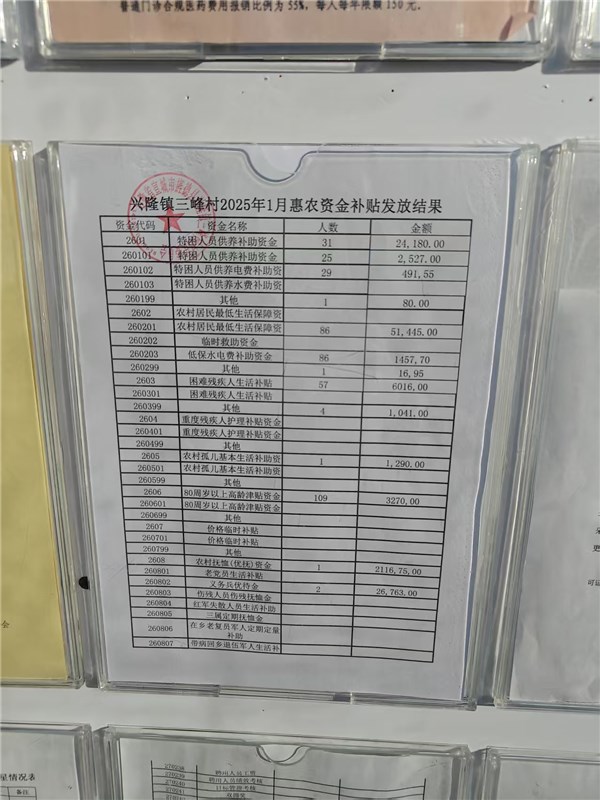 普通门诊合规医药费用报销比例为55%，每人每年限额150元。
兴隆镇三峰村2025年1月惠农资金补贴发放结果
资金代码 资金名称 人数 金额
2601 特困人员供养补助资金 31 24,180.00
260101 特困人员供养补助资金 25 2,527.00
260102 特困人员供养电费补助资 29 491.55
260103 特困人员供养水费补助资
260199 其他 1 80.00
2602 农村居民最低生活保障资
260201 农村居民最低生活保障资 86 51,445.00
260202 临时救助资金
260203 低保水电费补助资金 86 1457.70
260299 其他 1 16.95
2603 困难残疾人生活补贴 57 6016.00
260301 困难残疾人生活补贴
260399 其他 4 1,041.00
2604 重度残疾人护理补贴资金
260401 重度残疾人护理补贴资金
260499 其他
2605 农村孤儿基本生活补助资 1 1,290.00
260501 农村孤儿基本生活补助资
260599 其他
2606 80周岁以上高龄津贴资金 109 3270.00
260601 80周岁以上高龄津贴资金
260699 其他
2607 价格临时补贴
260701 价格临时补贴
260799 其他
2608 农村抚恤(优抚)资金 1 2116,75.00
260801 老党员生活补贴
260802 义务兵优待金 2 26,763.00
260803 伤残人员伤残抚恤金
260804 红军失散人员生活补助
260805 三属定期抚恤金
260806 在乡老复员军人定期定量
补助
260807 带病回乡退伍军人生活补
星情况表
备注